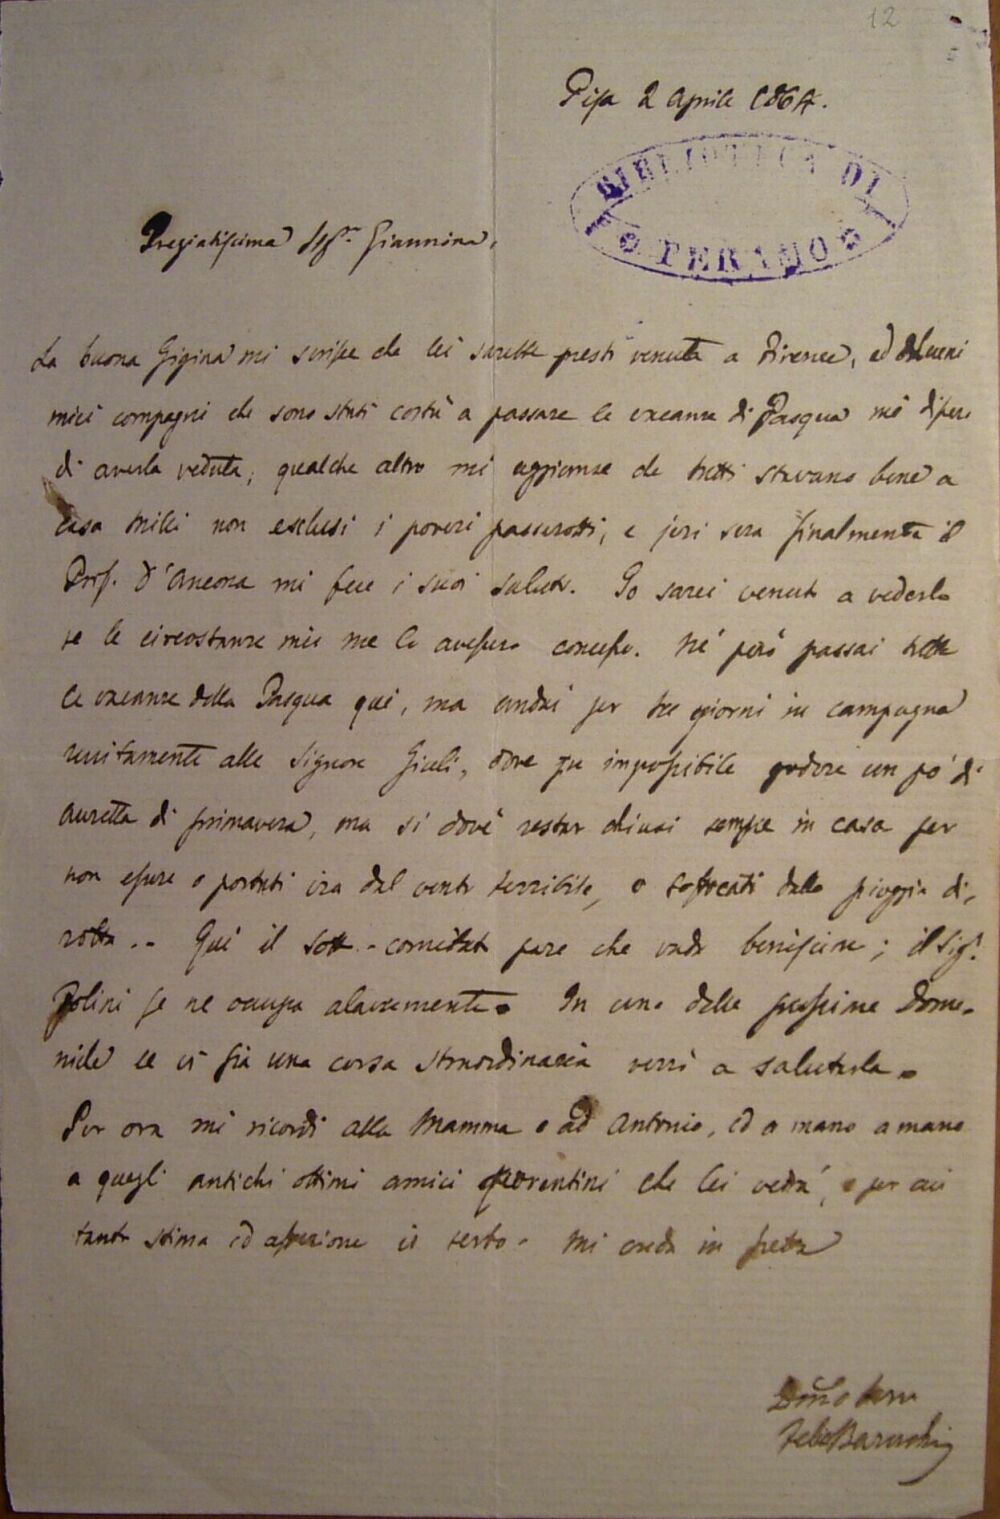 12
Pisa 2 Aprile 1864.
BIBLIOTECA DI
TERAMO
Pregiatissima Sigra Giannina,
La buona Gigina mi scrisse che lei sarebbe presto venuta a Firenze, ed alcuni
miei compagni che sono stati costì a passare le vacanze di Pasqua mi dissero
di averla veduta; qualche altro mi aggiunse che tutti stavano bene a
casa Milli non esclusi i poveri passerotti; e jeri sera finalmente il
Prof. D'Ancona mi fece i suoi saluti. Io sarei venuto a vederla
se le circostanze mie me lo avessero concesso. Nè però passai tutte
le vacanze della Pasqua qui, ma andai per tre giorni in campagna
unitamente alle Signore Giuli, dove fu impossibile godere un po' di
auretta di primavera, ma si dovè restar chiusi sempre in casa per
non essere o portati via dal vento terribile, o soffocati dalla pioggia di-
rotta.. Quì il Sotto-comitato pare che vada benissimo; il Sigr
se ne occupa alacremente. In una delle prossime Dome-
niche se vi sia una corsa straordinaria verrò a salutarla.
Per ora mi ricordi alla Mamma e ad Antonio, ed a mano a mano
a quegli antichi ottimi amici fiorentini che lei vedrà, e per cui
tanta stima ed affezione io serbo. Mi creda in fretta
Febo